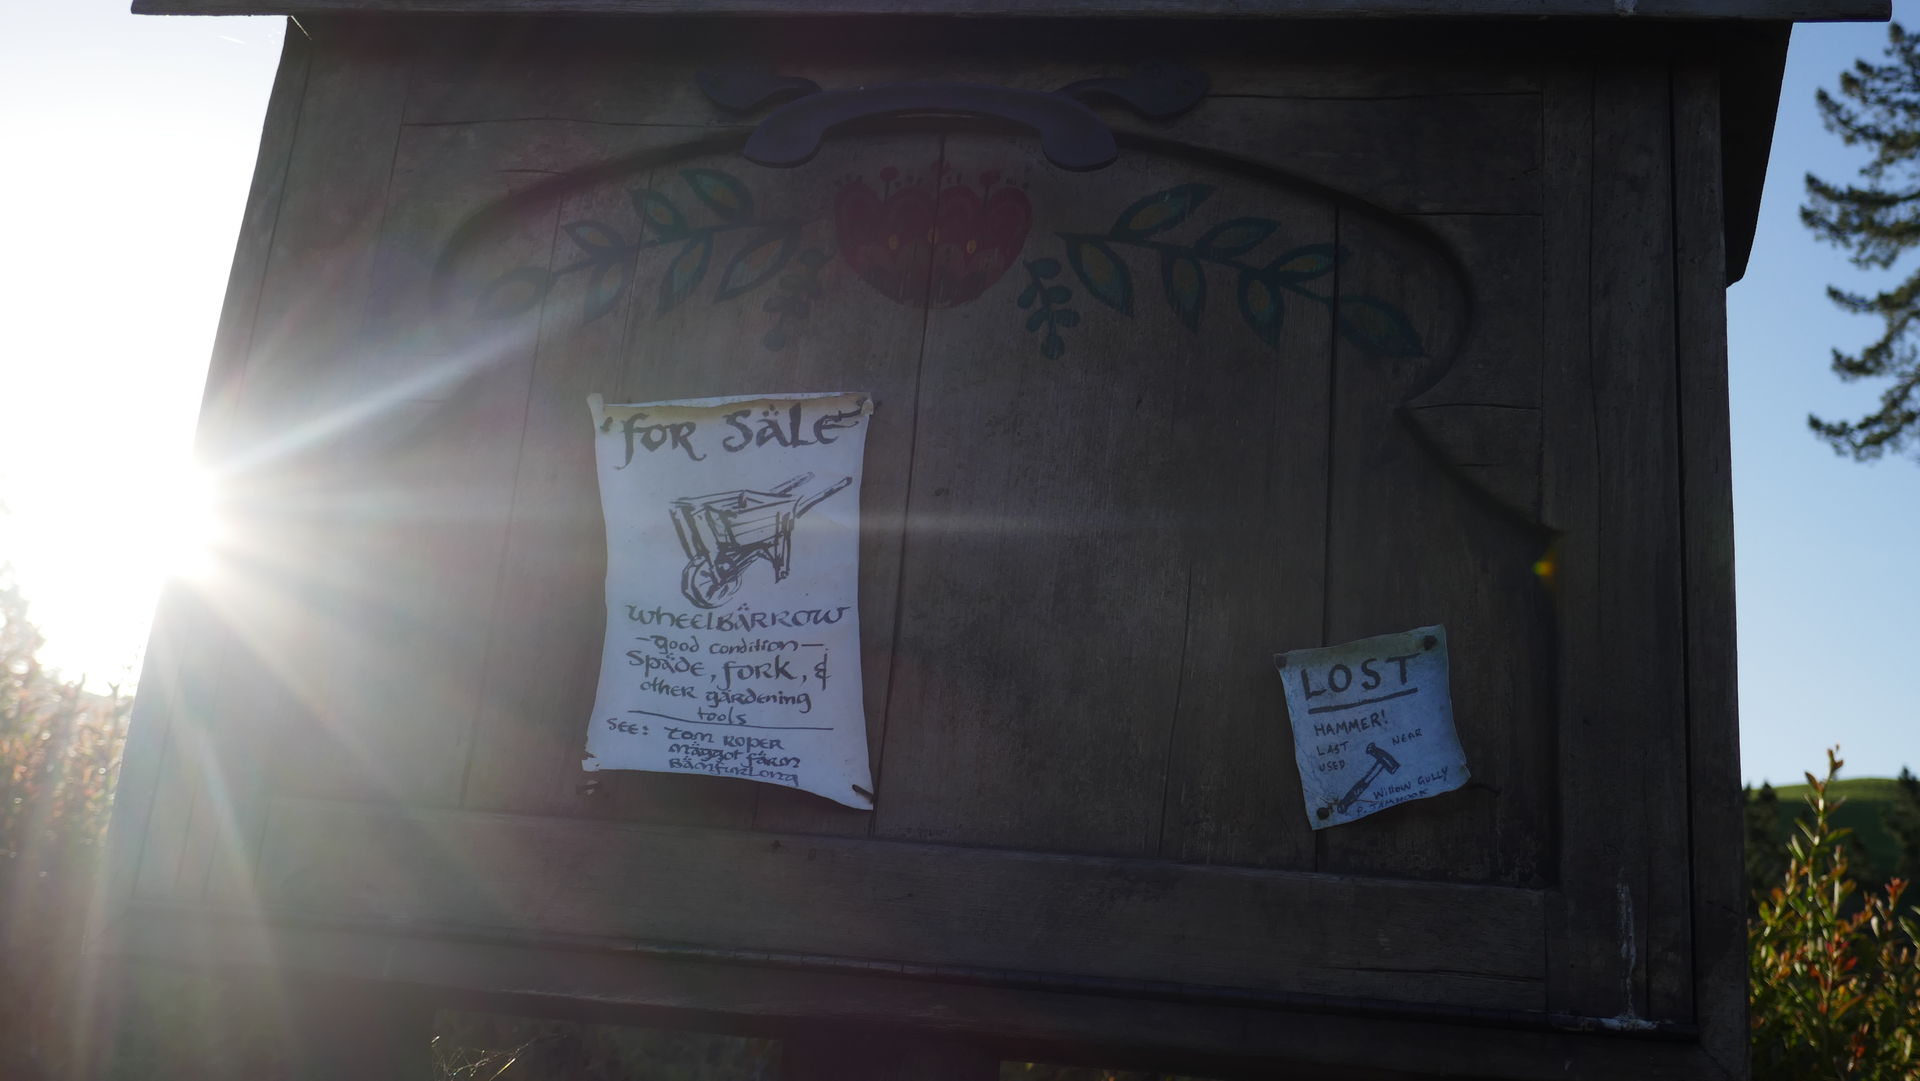 FOR SÄLE
WHEELBÄRROW
-good condition-
Späde, fork, &
other gärdening
tools
SEE: Tom Roper
Mäggot färm
Bämfurlong
LOST
HAMMER!
LAST NEAR
USED
Willow Gully